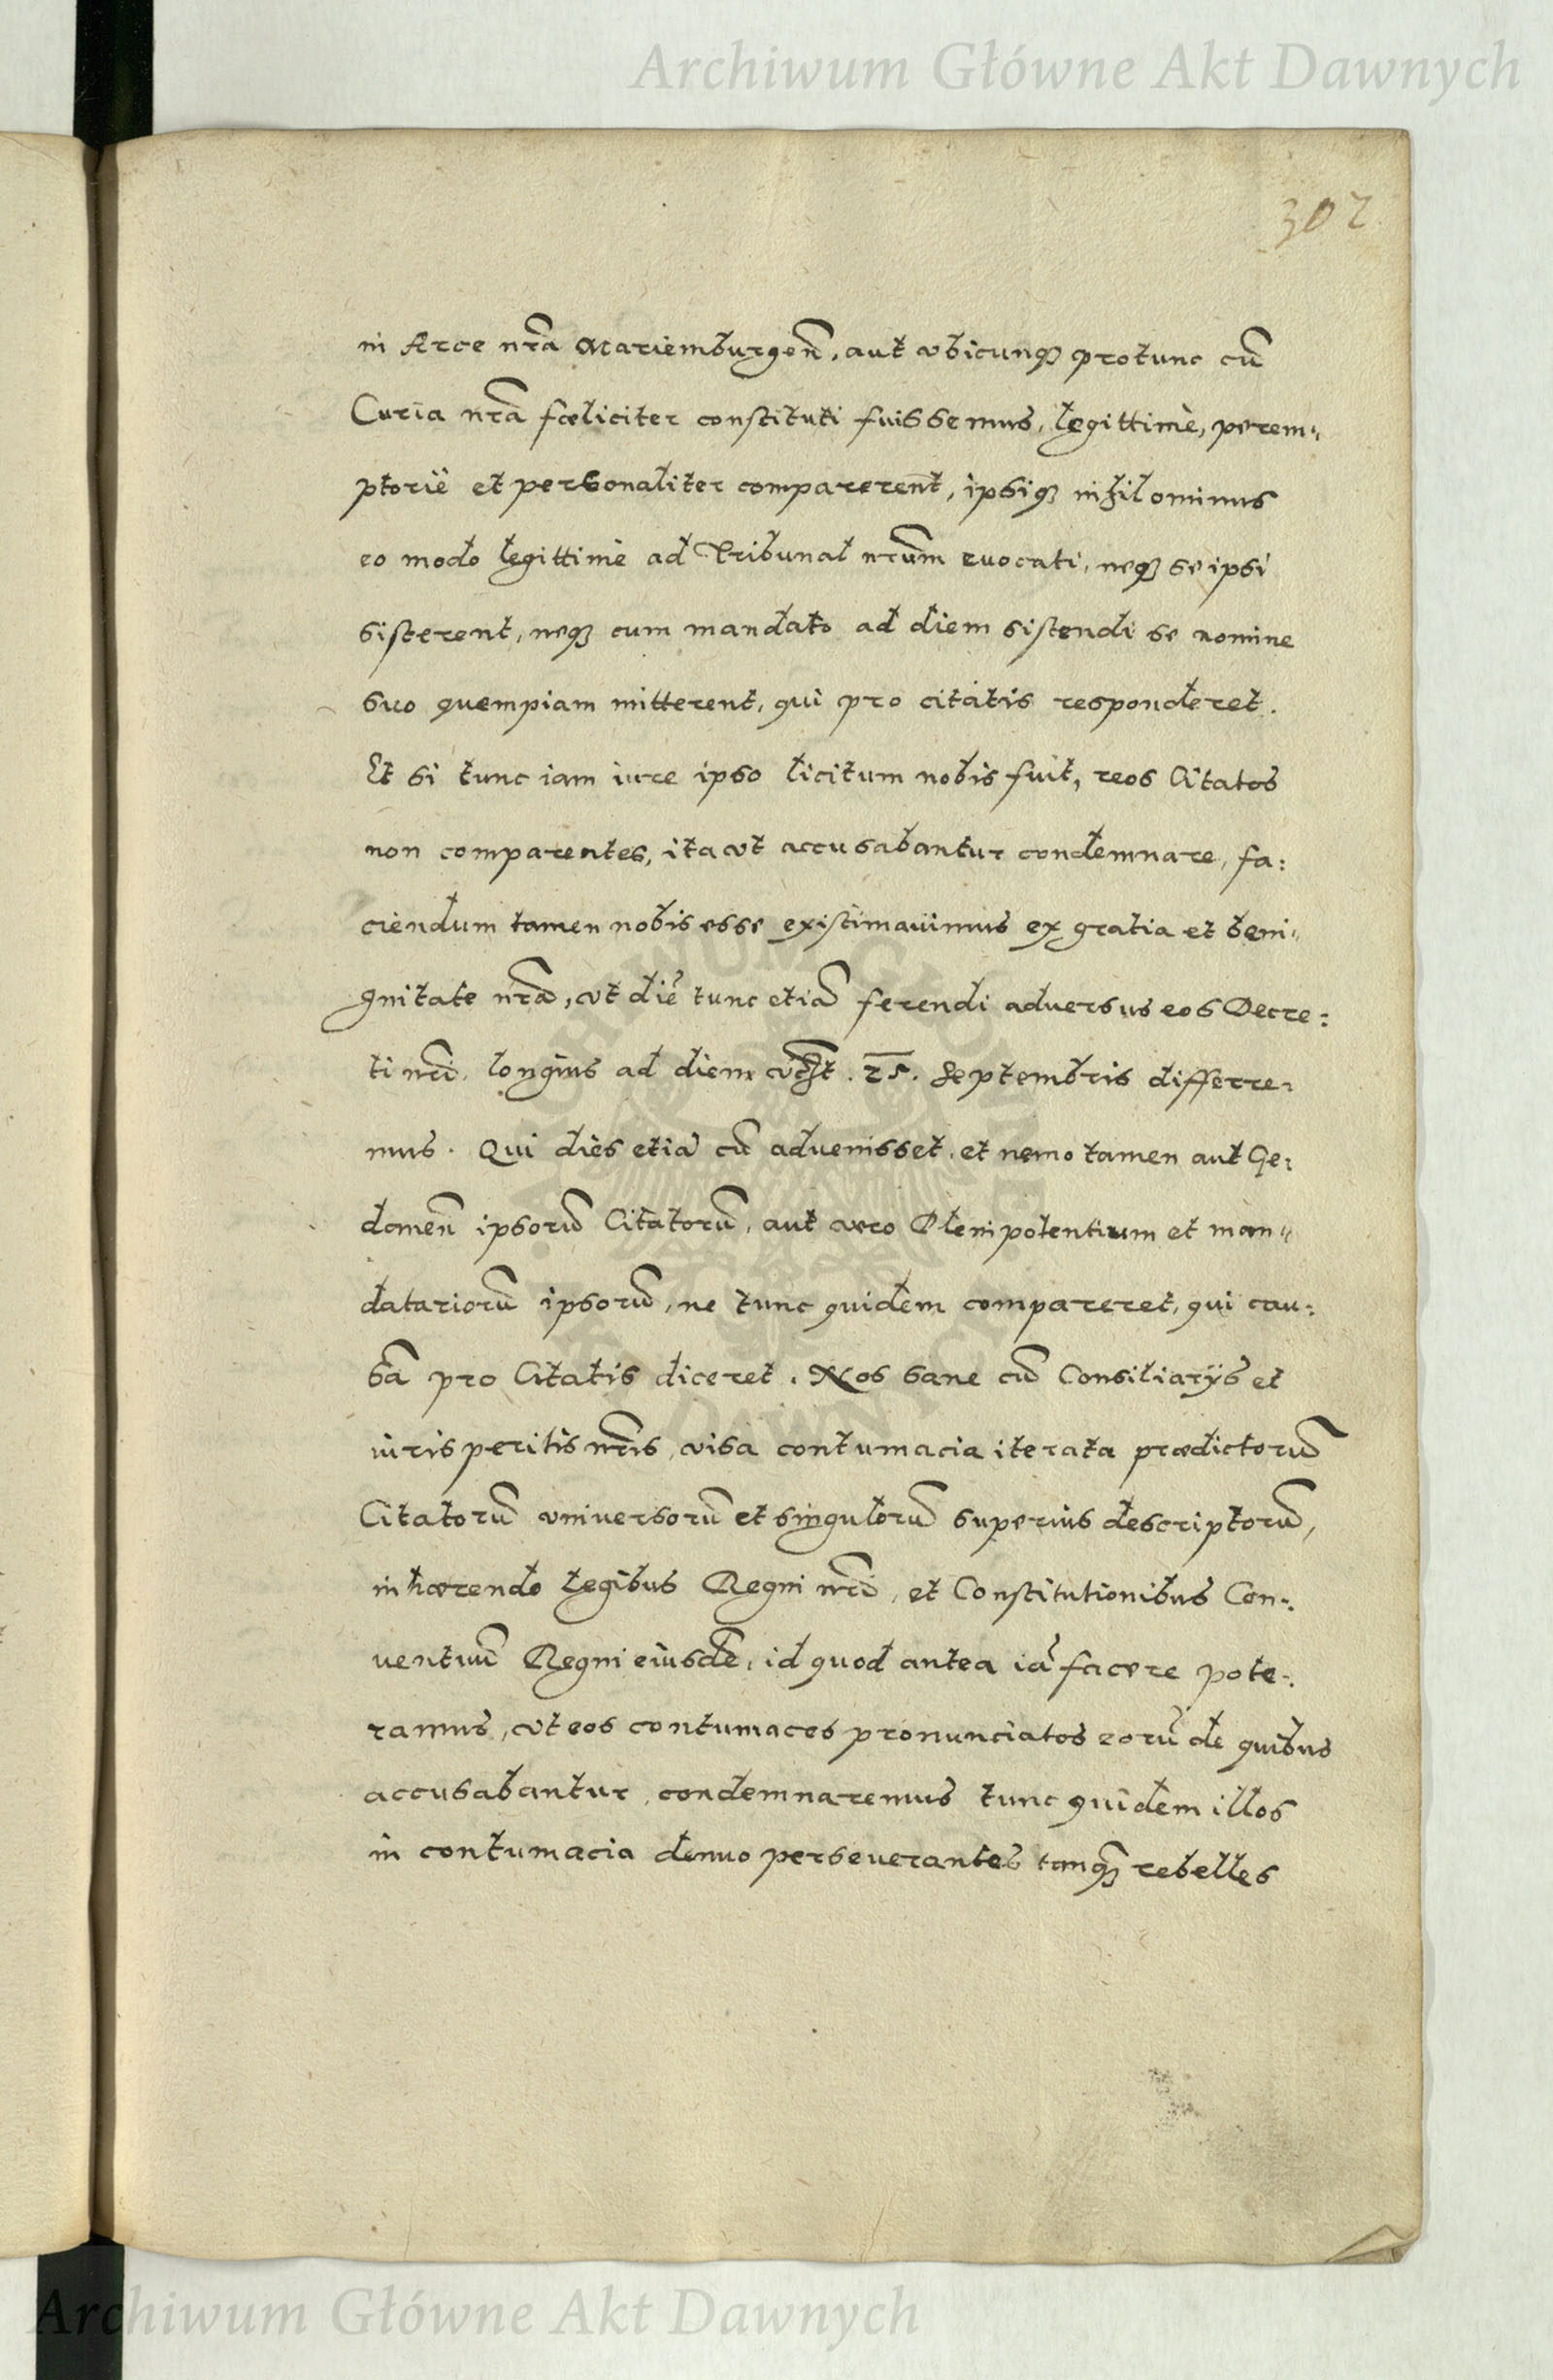 Archiwum Główne Akt Dawnych
302
in Arce nrã Mariemburgeñ, aut vbicunq₃ protunc cũ
Curia nrã fœliciter constituti fuissemus, legittimè, perem„
ptoriè et personaliter comparerent, ipsiq₃ nihilominus
eo modo legittimè ad Tribunal nrũm euocati, neq₃ se ipsi
sisterent, neq₃ cum mandato ad diem sistendi se nomine
suo quempiam mitterent, qui pro citatis responderet.
Et si tunc iam iure ipso licitum nobis fuit, reos Citatos
non comparentes, ita vt accusabantur condemnare, fa:
ciendum tamen nobis esse existimauimus ex gratia et beni„
gnitate nrã, vt diẽ tunc etiã ferendi aduersus eos Decre:
ti nrĩ, longius ad diem 25. Septembris differre:
mus. Qui dies etiã cũ aduenisset, et nemo tamen aut Ge:
daneñ ipsorũ Citatorũ, aut vero Plenipotentium et man„
datariorũ ipsorũ, ne tunc quidem compareret, qui cau:
sã pro Citatis diceret. Nos sane cũ Consiliarijs et
iurisperitis nrĩs, visa contumacia iterata prædictorũ
Citatorũ vniuersorũ et singulorũ superius descriptorũ,
inhærendo legibus Regni nrĩ, et Constitutionibus Con:
uentuũ Regni eiusdẽ, id quod antea iã facere pote:
ramus, vt eos contumaces pronunciatos eorũ de quibus
accusabantur, condemnaremus tunc quidem illos
in contumacia denuo perseuerantes tanq₃ rebelles
ARCHIWUM GŁÓWNE AKT DAWNYCH
Archiwum Główne Akt Dawnych